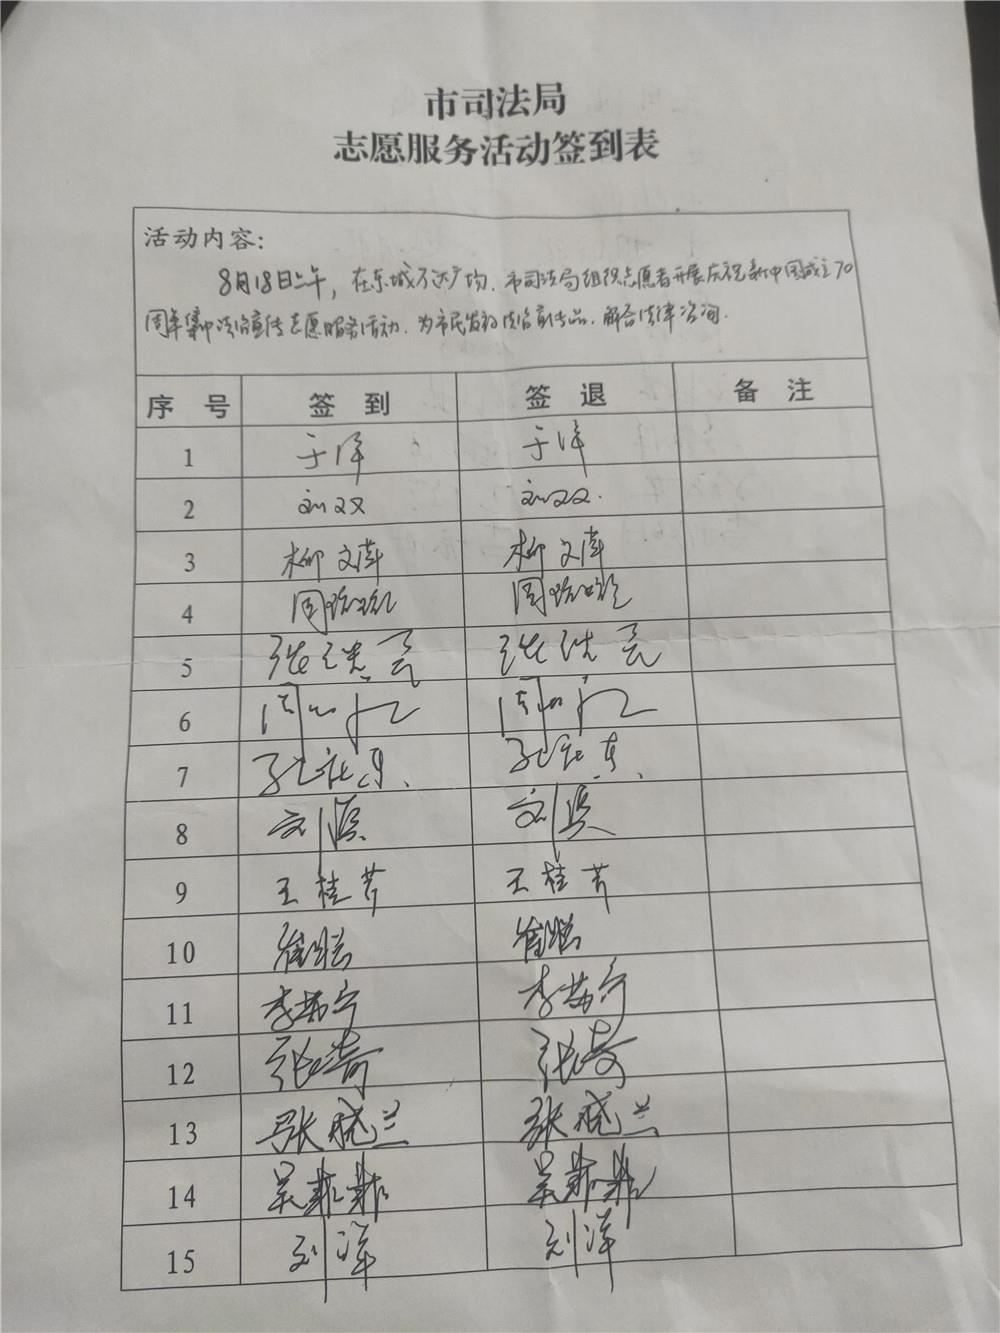 市司法局
志愿服务活动签到表
活动内容：
8月18日上午，在东城万达广场，市司法局组织志愿者开展庆祝新中国成立70
周年集中法治宣传志愿服务活动，为市民发放法治宣传品，解答法律咨询.
序 号 签 到 签 退 备 注
1 于洋 于洋
2 刘双 刘双.
3 柳文涛 柳文涛
4 周
5 张洪亮 张洪亮
6 周 周
7 孔 孔
8 刘滨 刘滨
9 王桂芹 王桂芹
10 崔聪 崔聪
11 李荣宁 李荣宁
12 张 张
13 张晓兰 张晓兰
14 吴菲菲 吴菲菲
15 刘洋 刘洋